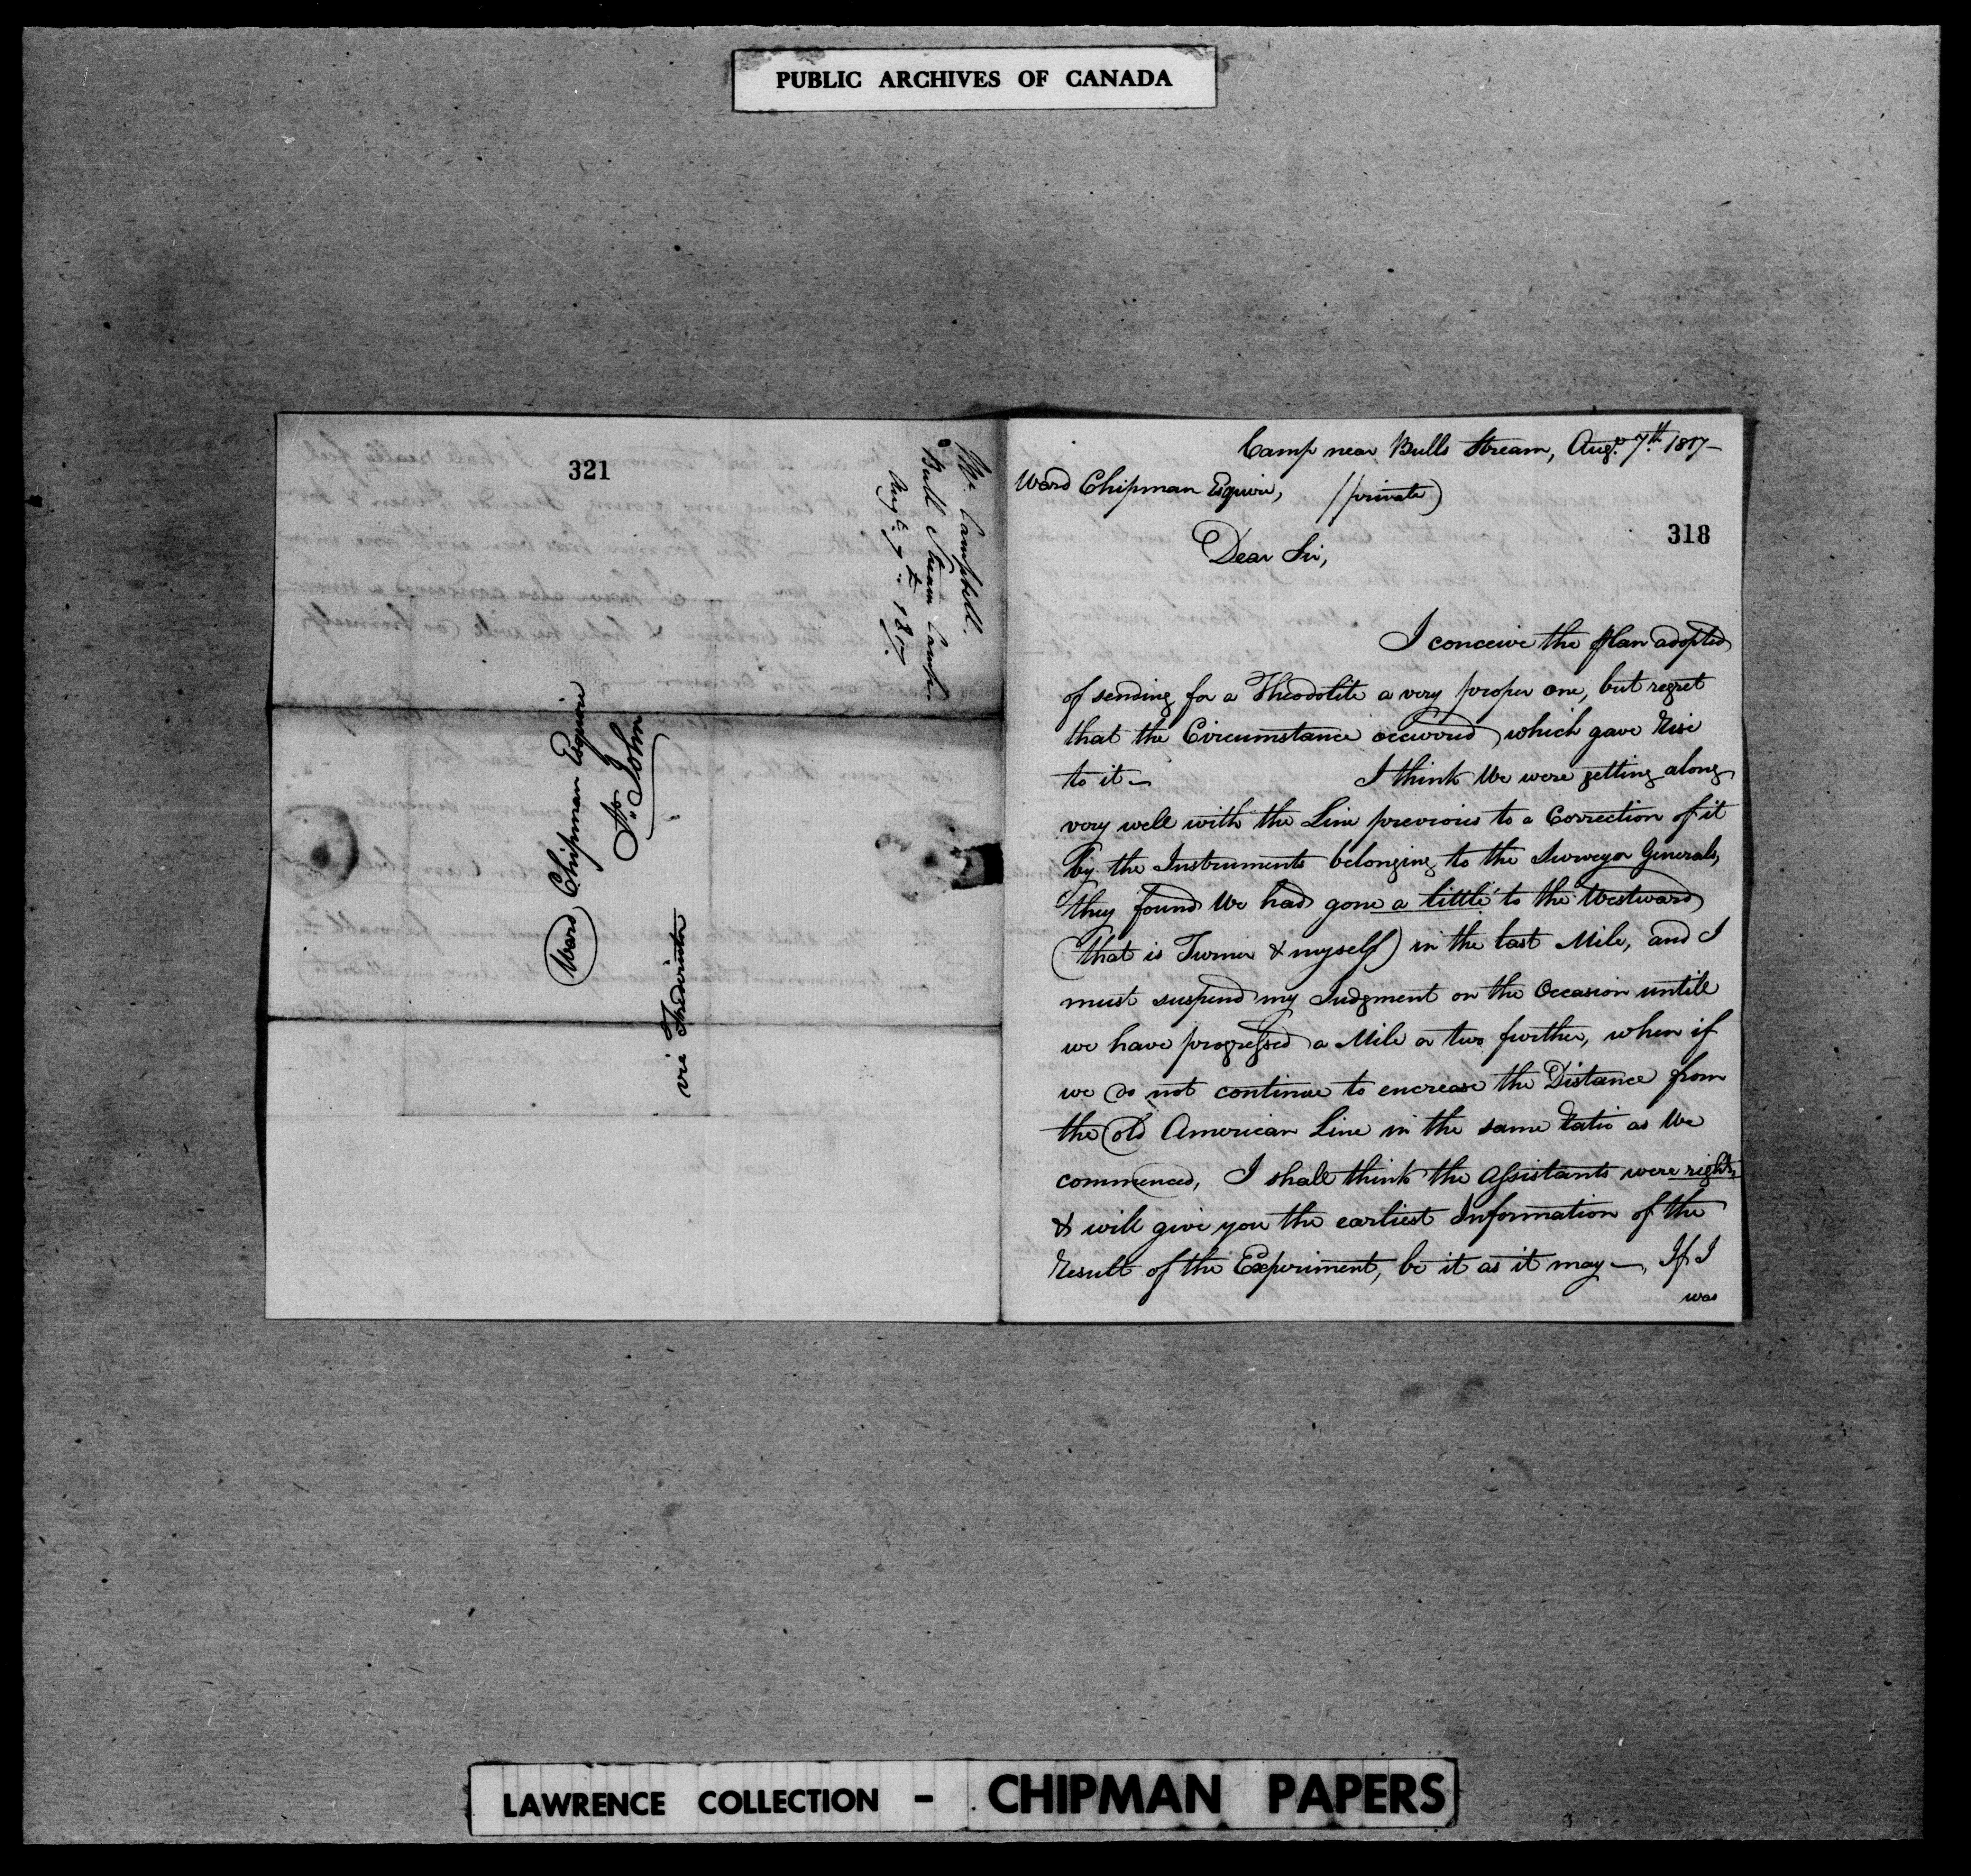 PUBLIC ARCHIVES OF CANADA
321
Mr. Campbell.
Bull Stream Camp.
Augt. 7th. 1817.
Ward Chipman Esquire
St. John
via Fredericton
Camp near Bulls Stream, Augt. 7th. 1817 —
Ward Chipman Esquire, (private)
318
Dear Sir,
I conceive the plan adopted
of sending for a Theodolite a very proper one, but regret
that the Circumstance occurred which gave Rise
to it — I think We were getting along
very well with the Line previous to a Correction of it
by the Instruments belonging to the Surveyor Generals,
they found We had gone a little to the Westward
(that is Turner & myself) in the last Mile, and I
must suspend my Judgment on the Occasion untill
we have progressed a Mile or two further, when if
we do not continue to encrease the Distance from
the old American Line in the same Ratio as We
commenced, I shall think the Assistants were right,
& will give you the earliest Information of the
Result of the Experiment, be it as it may —, If I
was
LAWRENCE COLLECTION - CHIPMAN PAPERS